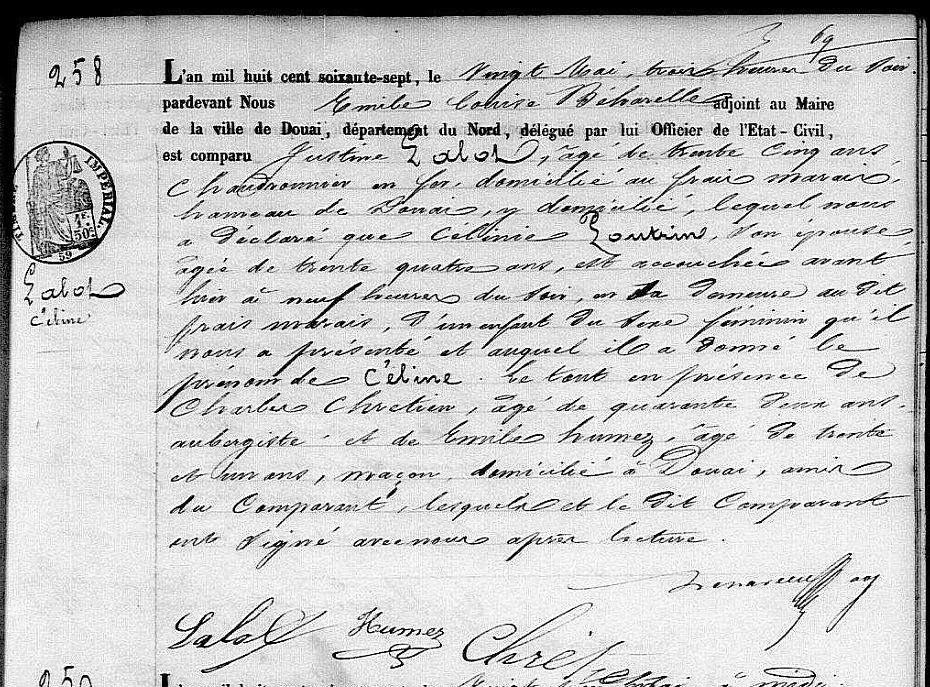 69
258
L'an mil huit cent soixante-sept, le Vingt Mai, trois heures du soir
pardevant Nous Emile Louise Béharelle adjoint au Maire
de la ville de Douai, département du Nord, délégué par lui Officier de l'Etat-Civil,
est comparu Justine Lalot, âgé de trente cinq ans
Chaudronnier en fer, domicilié au frais marais,
hameau de Douai, y domicilié, lequel nous
a déclaré que Célinie Loutrin, son épouse
âgée de trente quatre ans, est accouchée avant
hier à neuf heures du soir, en sa demeure au dit
frais marais, d'un enfant du sexe féminin qu'il
nous a présenté et auquel il a donné le
prénom de Céline. Le tout en présence de
Charles Chretien, âgé de quarante deux ans,
aubergiste et de Emile humez, âgé de trente
et un ans, maçon, domicilié à Douai, amis
du Comparant, lesquels et le dit Comparant
ont signé avec nous après lecture.
IMPERIAL
1F.
50c
59
Lalot
Céline
Lalot Humez
L'an mil huit cent soixante-sept, le